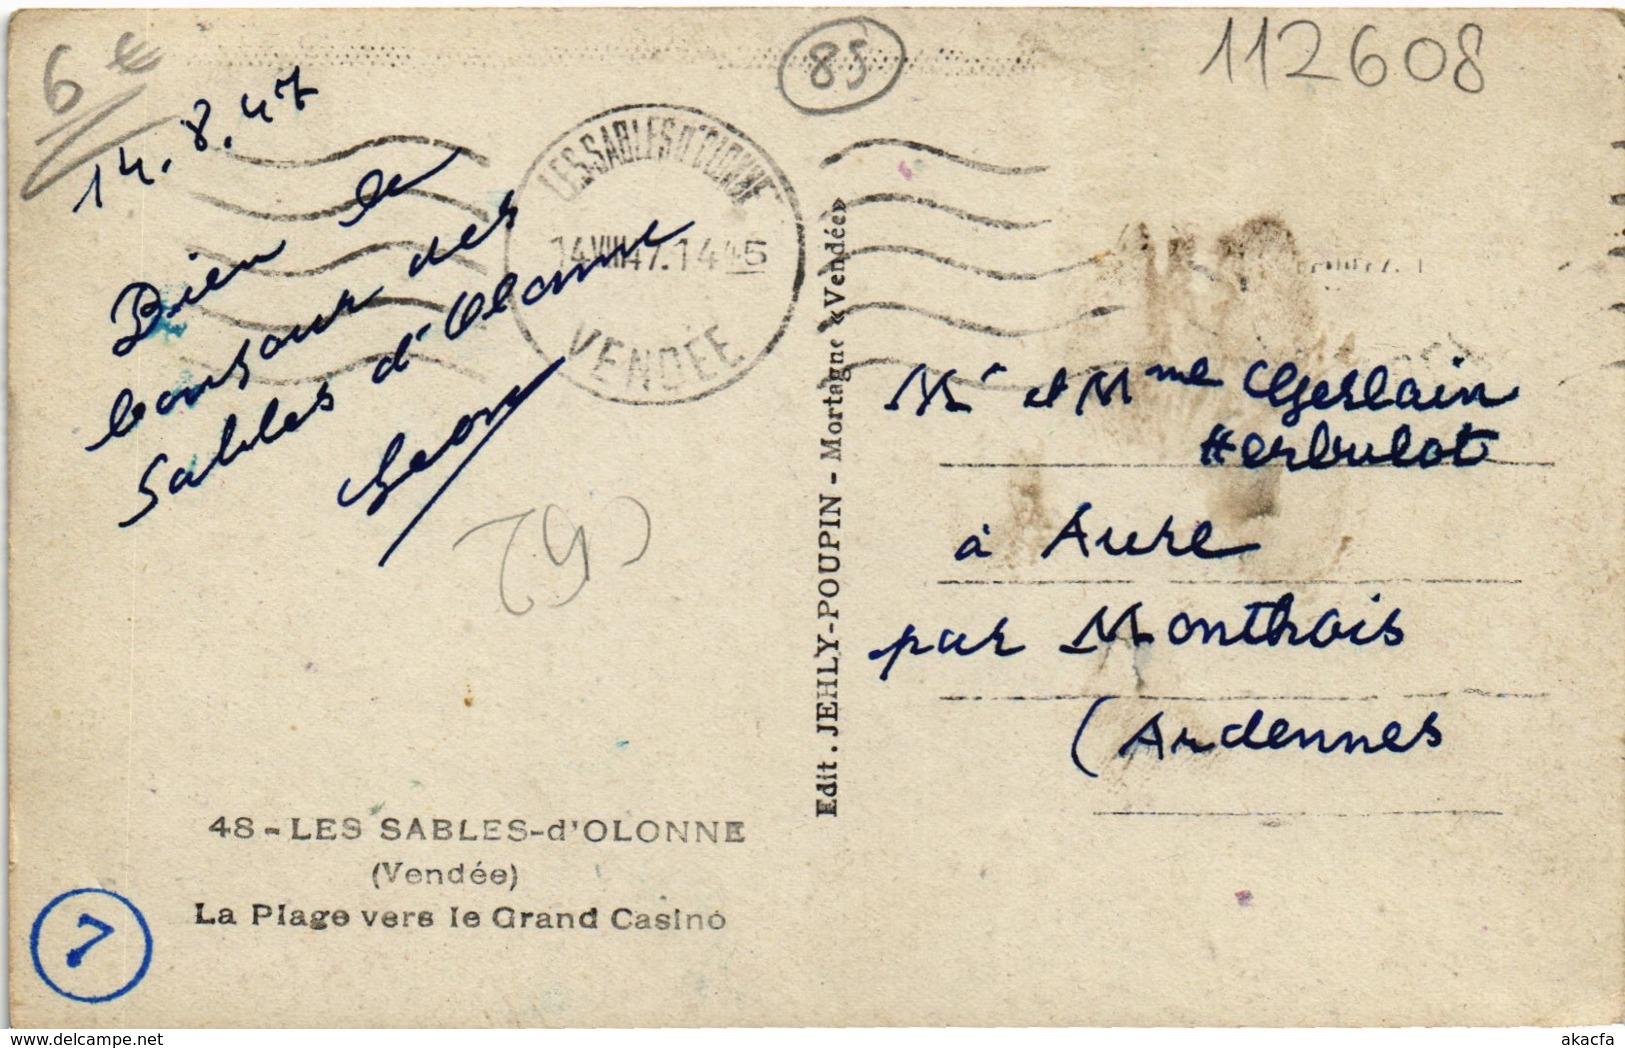 6 €
85
112608
14.8.47
LES SABLES D'OLONNE
14 VIII 47.1445
VENDÉE
Bien le
bonjour des
Sables d'Olonne
Mr et Mme Gerlain
Herbulot
à Aure
par Monthois
(Ardennes
Edit. JEHLY-POUPIN - Mortagne «Vendée»
48 - LES SABLES-d'OLONNE
(Vendée)
La Plage vers le Grand Casino
7
akacfa